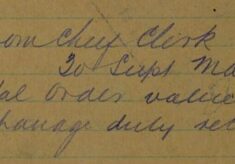 om Chief Clerk
20 Supt Ma
al order value
duty re